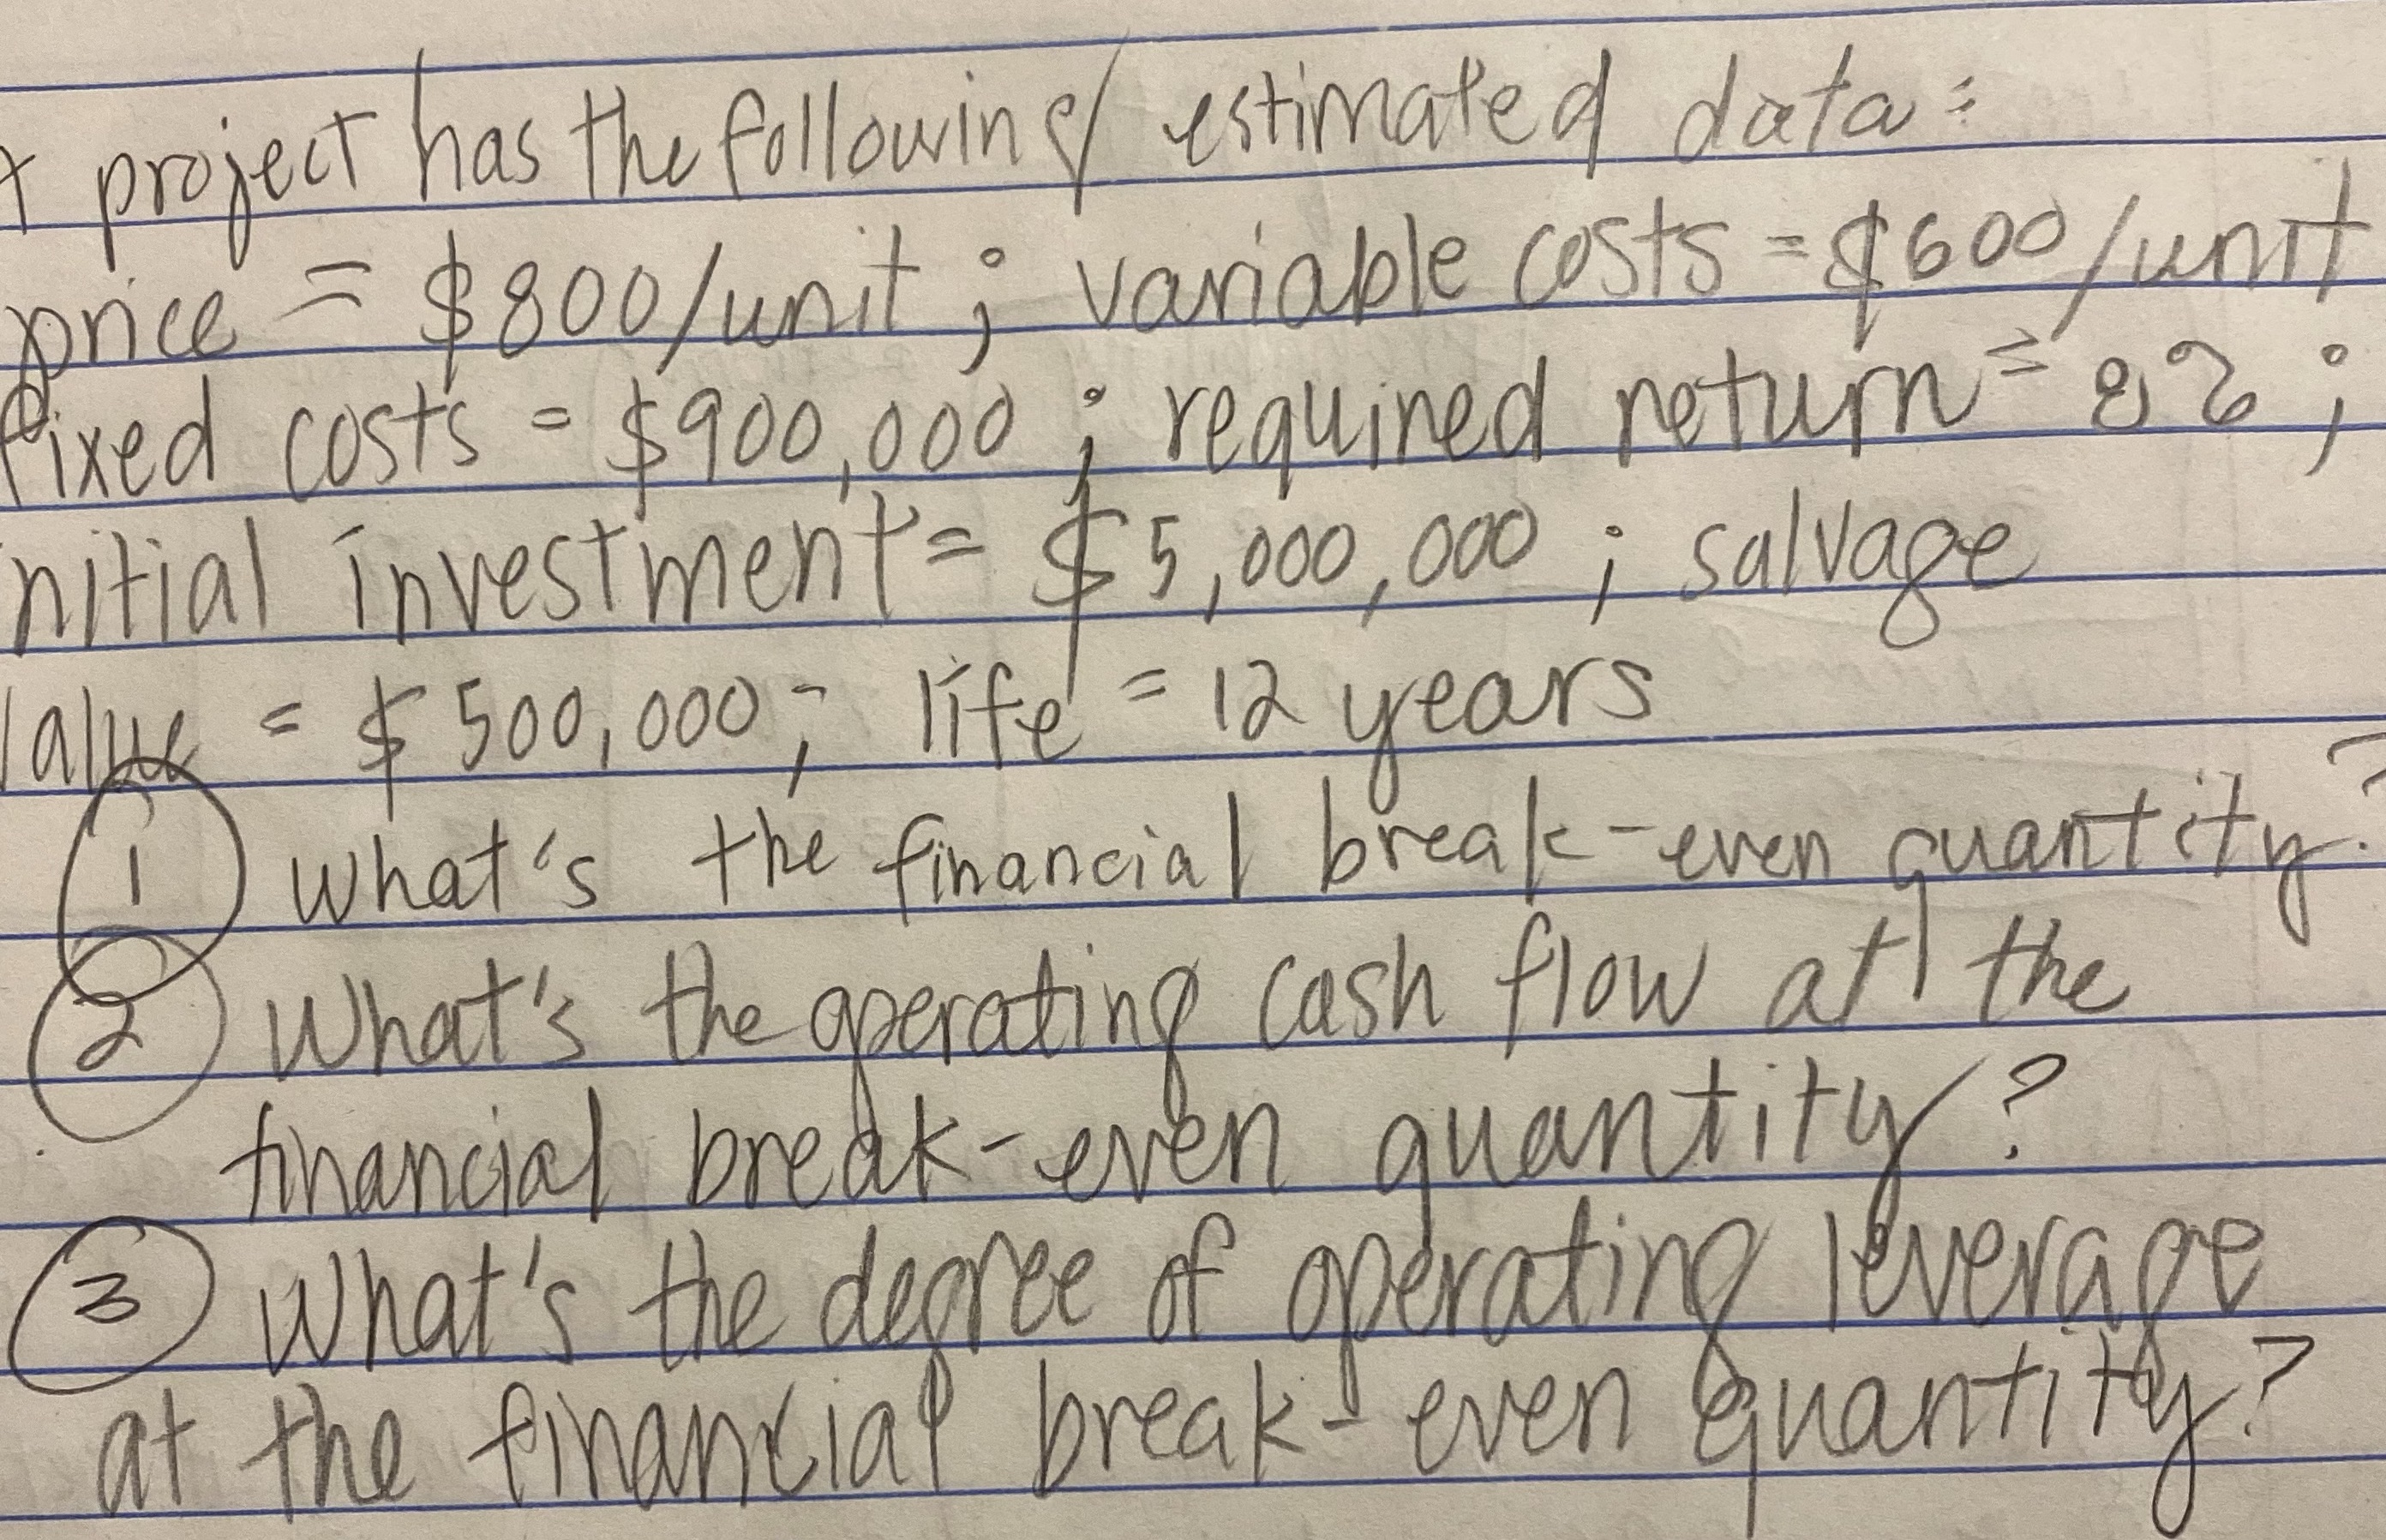 project has the following estimated data:
price = $800/unit; variable costs = $600/unit
fixed costs = $900,000; required return = 8%;
nitial investment = $5,000,000; salvage
value = $500,000; life = 12 years
1 What's the financial break-even quantity?
2 What's the operating cash flow at the
financial break-even quantity?
3 What's the degree of operating leverage
at the financial break-even quantity?